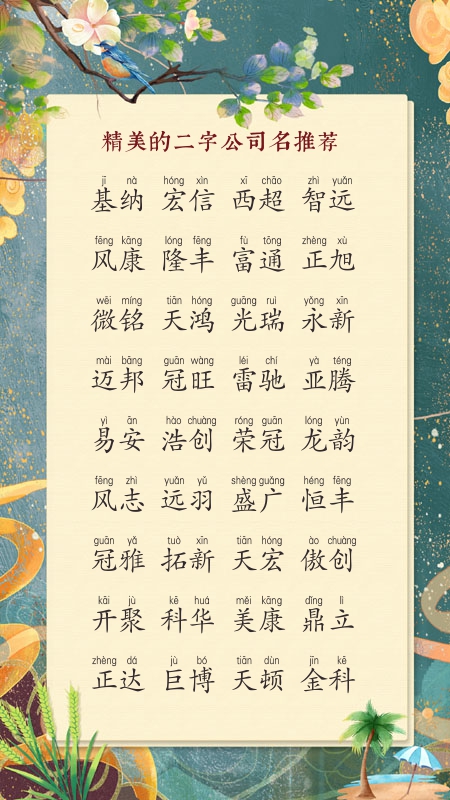 精美的二字公司名推荐
jī nà hóng xìn xī chāo zhì yuǎn
基纳 宏信 西超 智远
fēng kāng lóng fēng fù tōng zhèng xù
风康 隆丰 富通 正旭
wēi míng tiān hóng guāng ruì yǒng xīn
微铭 天鸿 光瑞 永新
mài bāng guān wàng léi chí yà téng
迈邦 冠旺 雷驰 亚腾
yì ān hào chuàng róng guān lóng yùn
易安 浩创 荣冠 龙韵
fēng zhì yuǎn yǔ shèng guǎng héng fēng
风志 远羽 盛广 恒丰
guān yǎ tuò xīn tiān hóng ào chuàng
冠雅 拓新 天宏 傲创
kāi jù kē huá měi kāng dǐng lì
开聚 科华 美康 鼎立
zhèng dá jù bó tiān dùn jīn kē
正达 巨博 天顿 金科